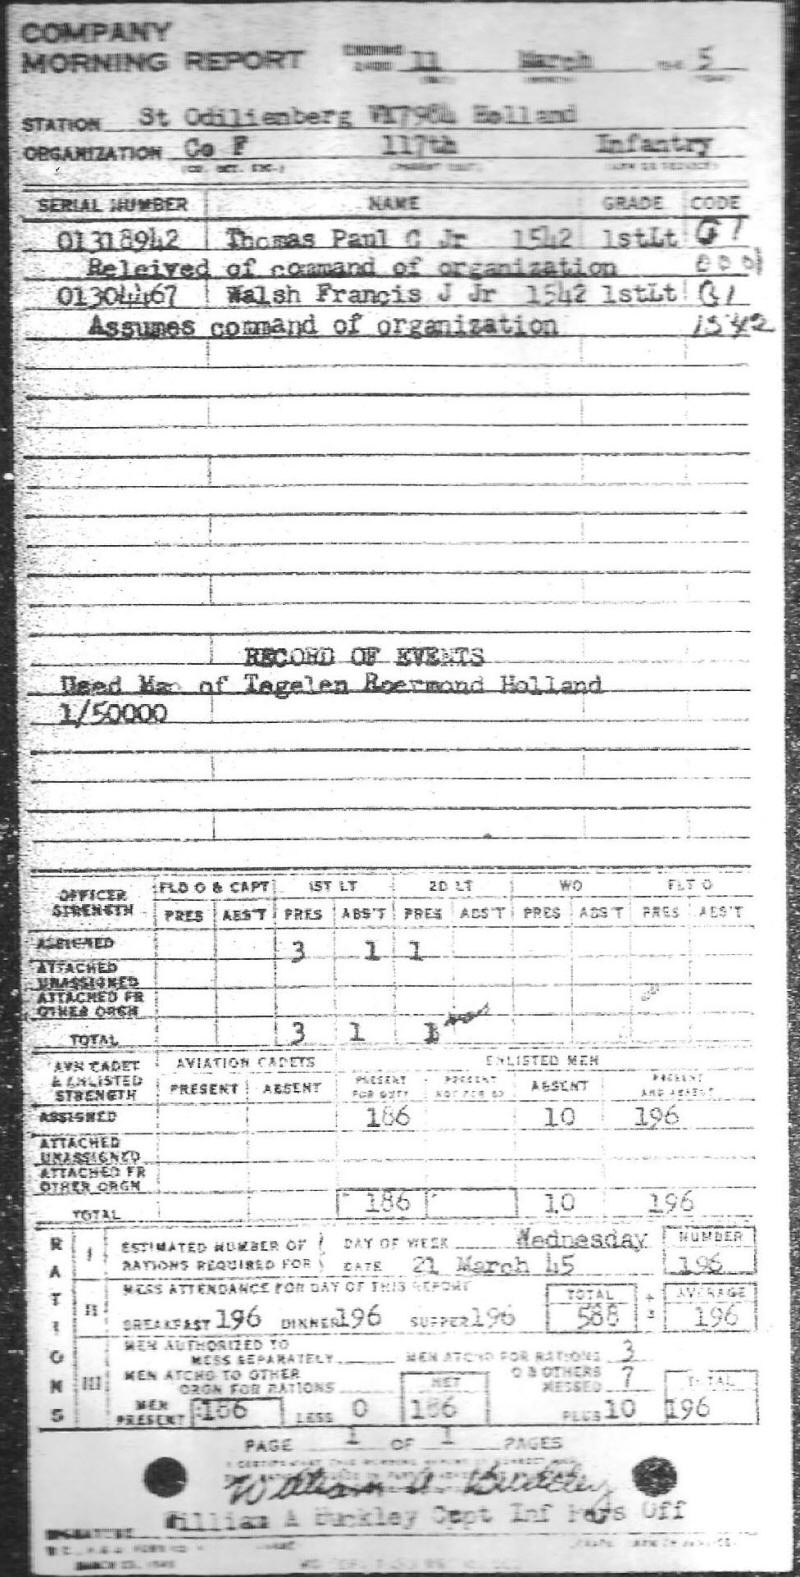 COMPANY
MORNING REPORT ENDING 2400 11 March 5
STATION St Odilienberg VK7984 Holland
ORGANIZATION Co F 117th Infantry
SERIAL NUMBER NAME GRADE CODE
01318942 Thomas Paul C Jr 1542 1stLt
Releived of command of organization
01304467 Walsh Francis J Jr 1542 1stLt
Assumes command of organization 1542
RECORD OF EVENTS
Used Map of Tegelen Roermond Holland
1/50000
OFFICER STRENGTH FLD O & CAPT 1ST LT 2D LT WO FLT O
PRES ABS'T PRES ABS'T PRES ABS'T PRES ABS'T PRES ABS'T
ASSIGNED 3 1 1
ATTACHED UNASSIGNED
ATTACHED FR OTHER ORGN
TOTAL 3 1 1
AVN CADET & ENLISTED STRENGTH AVIATION CADETS ENLISTED MEN
PRESENT ABSENT PRESENT FOR DUTY PRESENT NOT FOR DY ABSENT PRESENT AND ABSENT
ASSIGNED 186 10 196
ATTACHED UNASSIGNED
ATTACHED FR OTHER ORGN
TOTAL 186 10 196
RATIONS
I ESTIMATED NUMBER OF RATIONS REQUIRED FOR DAY OF WEEK Wednesday NUMBER
DATE 21 March 45 196
II MESS ATTENDANCE FOR DAY OF THIS REPORT TOTAL ÷ 3 AVERAGE
BREAKFAST 196 DINNER 196 SUPPER 196 588 196
III MEN AUTHORIZED TO MESS SEPARATELY MEN ATCHD FOR RATIONS 3
MEN ATCHD TO OTHER ORGN FOR RATIONS NET O & OTHERS MESSED 7 TOTAL
MEN PRESENT 186 LESS 0 186 PLUS 10 196
PAGE 1 OF 1 PAGES
William A Buckley
William A Buckley Capt Inf Pers Off
SIGNATURE